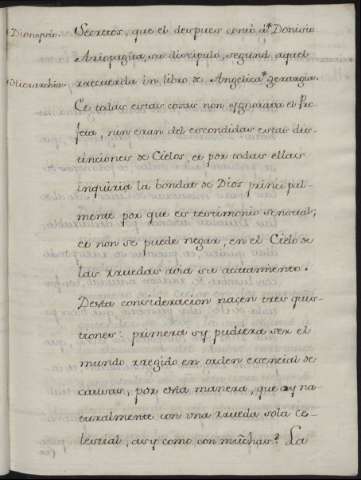 Dionisio. Secretos, que el despues contó áˢ Dionisio
Ariopagita, su discipulo, segund aquel
Hierarchia. rrecuerda in libro de Angelicaˢ gerargia.
Ce todas estas cosas non ygnorava el Pro
feta, nin eran del escondidas estas dis-
tinciones de Cielos, et por todas ellas
inquiria la bondat de Dios princi pal-
mente por que es testimonio sensual;
et non se puede negar, en el Cielo de
las rruedas ava su acatamento.
Desta consideracion nacen tres ques-
tiones: primera sy pudiera ser el
mundo rregido en orden esencial de
causas, por esta manera, que sy na-
turalmente con una rrueda sola ce-
lestial, asy como con muchas? La